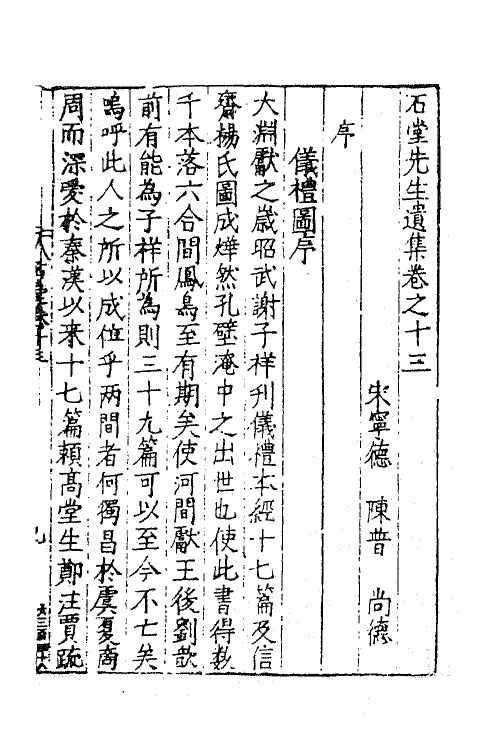 石堂先生遺集卷之十三
宋寧德　陳普　尚德
序
儀禮圖序
大淵獻之歲昭武謝子祥刋儀禮本經十七篇及信
齋楊氏圖成燁然孔壁淹中之出世也使此書得数
千本落六合間鳳鳥至有期矣使河間獻王後劉歆
前有能為子祥所為則三十九篇可以至今不亡矣
嗚呼此人之所以成位乎两間者何獨昌於虞夏商
周而深愛於秦漢以来十七篇頼髙堂生鄭注賈疏